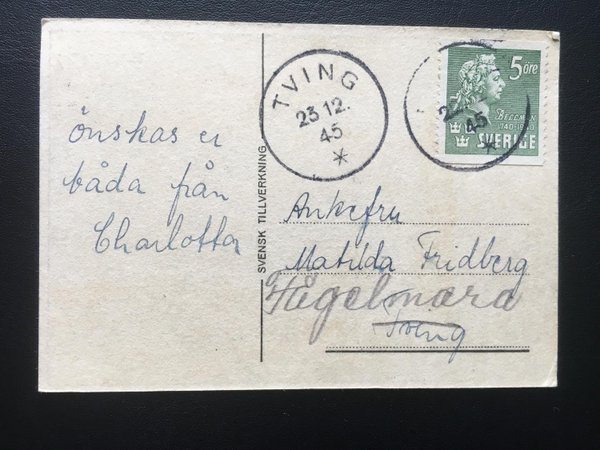 önskas er
båda från
Charlotta
SVENSK TILLVERKNING
TVING
23 12.
45
*
5 öre
BELLMAN
SVERIGE
45
*
Ankefru
Matilda Fridberg
Hågelmara
Tving